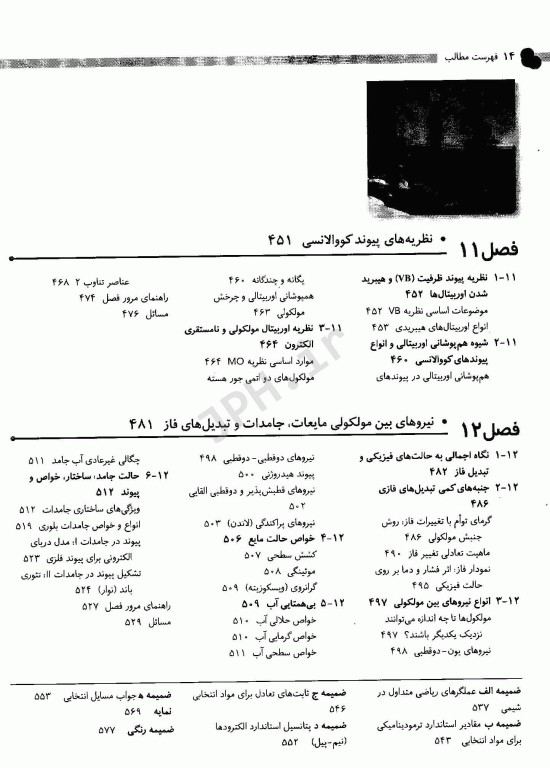 ۱۴ فهرست مطالب
فصل ۱۱
• نظریه‌های پیوند کووالانسی ۴۵۱
۱-۱۱ نظریه پیوند ظرفیت (VB) و هیبرید
شدن اوربیتال‌ها ۴۵۲
موضوعات اساسی نظریه VB ۴۵۲
انواع اوربیتال‌های هیبریدی ۴۵۳
۲-۱۱ شیوه همپوشانی اوربیتالی و انواع
پیوندهای کووالانسی ۴۶۰
هم‌پوشانی اوربیتالی در پیوندهای
یگانه و چندگانه ۴۶۰
همپوشانی اوربیتالی و چرخش
مولکولی ۴۶۳
۳-۱۱ نظریه اوربیتال مولکولی و نامستقری
الکترون ۴۶۴
موارد اساسی نظریه MO ۴۶۴
مولکول‌های دو اتمی جور هسته
عناصر تناوب ۲ ۴۶۸
راهنمای مرور فصل ۴۷۴
مسائل ۴۷۶
فصل ۱۲
• نیروهای بین مولکولی مایعات، جامدات و تبدیل‌های فاز ۴۸۱
۱-۱۲ نگاه اجمالی به حالت‌های فیزیکی و
تبدیل فاز ۴۸۲
۲-۱۲ جنبه‌های کمی تبدیل‌های فازی
۴۸۶
گرمای توأم با تغییرات فاز: روش
جنبش مولکولی ۴۸۶
ماهیت تعادلی تغییر فاز ۴۹۰
نمودار فاز: اثر فشار و دما بر روی
حالت فیزیکی ۴۹۵
۳-۱۲ انواع نیروهای بین مولکولی ۴۹۷
مولکول‌ها تا چه اندازه می‌توانند
نزدیک یکدیگر باشند؟ ۴۹۷
نیروهای یون-دوقطبی ۴۹۸
نیروهای دوقطبی-دوقطبی ۴۹۸
پیوند هیدروژنی ۵۰۰
نیروهای قطبش‌پذیر و دوقطبی القایی
۵۰۲
نیروهای پراکندگی (لاندن) ۵۰۳
۴-۱۲ خواص حالت مایع ۵۰۶
کشش سطحی ۵۰۷
موئینگی ۵۰۸
گرانروی (ویسکوزیته) ۵۰۹
۵-۱۲ بی‌همتایی آب ۵۰۹
خواص حلالی آب ۵۱۰
خواص گرمایی آب ۵۱۰
خواص سطحی آب ۵۱۱
چگالی غیرعادی آب جامد ۵۱۱
۶-۱۲ حالت جامد: ساختار، خواص و
پیوند ۵۱۲
ویژگی‌های ساختاری جامدات ۵۱۲
انواع و خواص جامدات بلوری ۵۱۹
پیوند در جامدات I: مدل دریای
الکترونی برای پیوند فلزی ۵۲۳
تشکیل پیوند در جامدات II: تئوری
باند (نوار) ۵۲۴
راهنمای مرور فصل ۵۲۷
مسائل ۵۲۹
ضمیمه الف عملگرهای ریاضی متداول در
شیمی ۵۳۷
ضمیمه ب مقادیر استاندارد ترمودینامیکی
برای مواد انتخابی ۵۴۳
ضمیمه ج ثابت‌های تعادل برای مواد انتخابی
۵۴۶
ضمیمه د پتانسیل استاندارد الکترودها
(نیم-پیل) ۵۵۲
ضمیمه ه جواب مسایل انتخابی ۵۵۳
نمایه ۵۶۹
ضمیمه رنگی ۵۷۷
JPH.ir